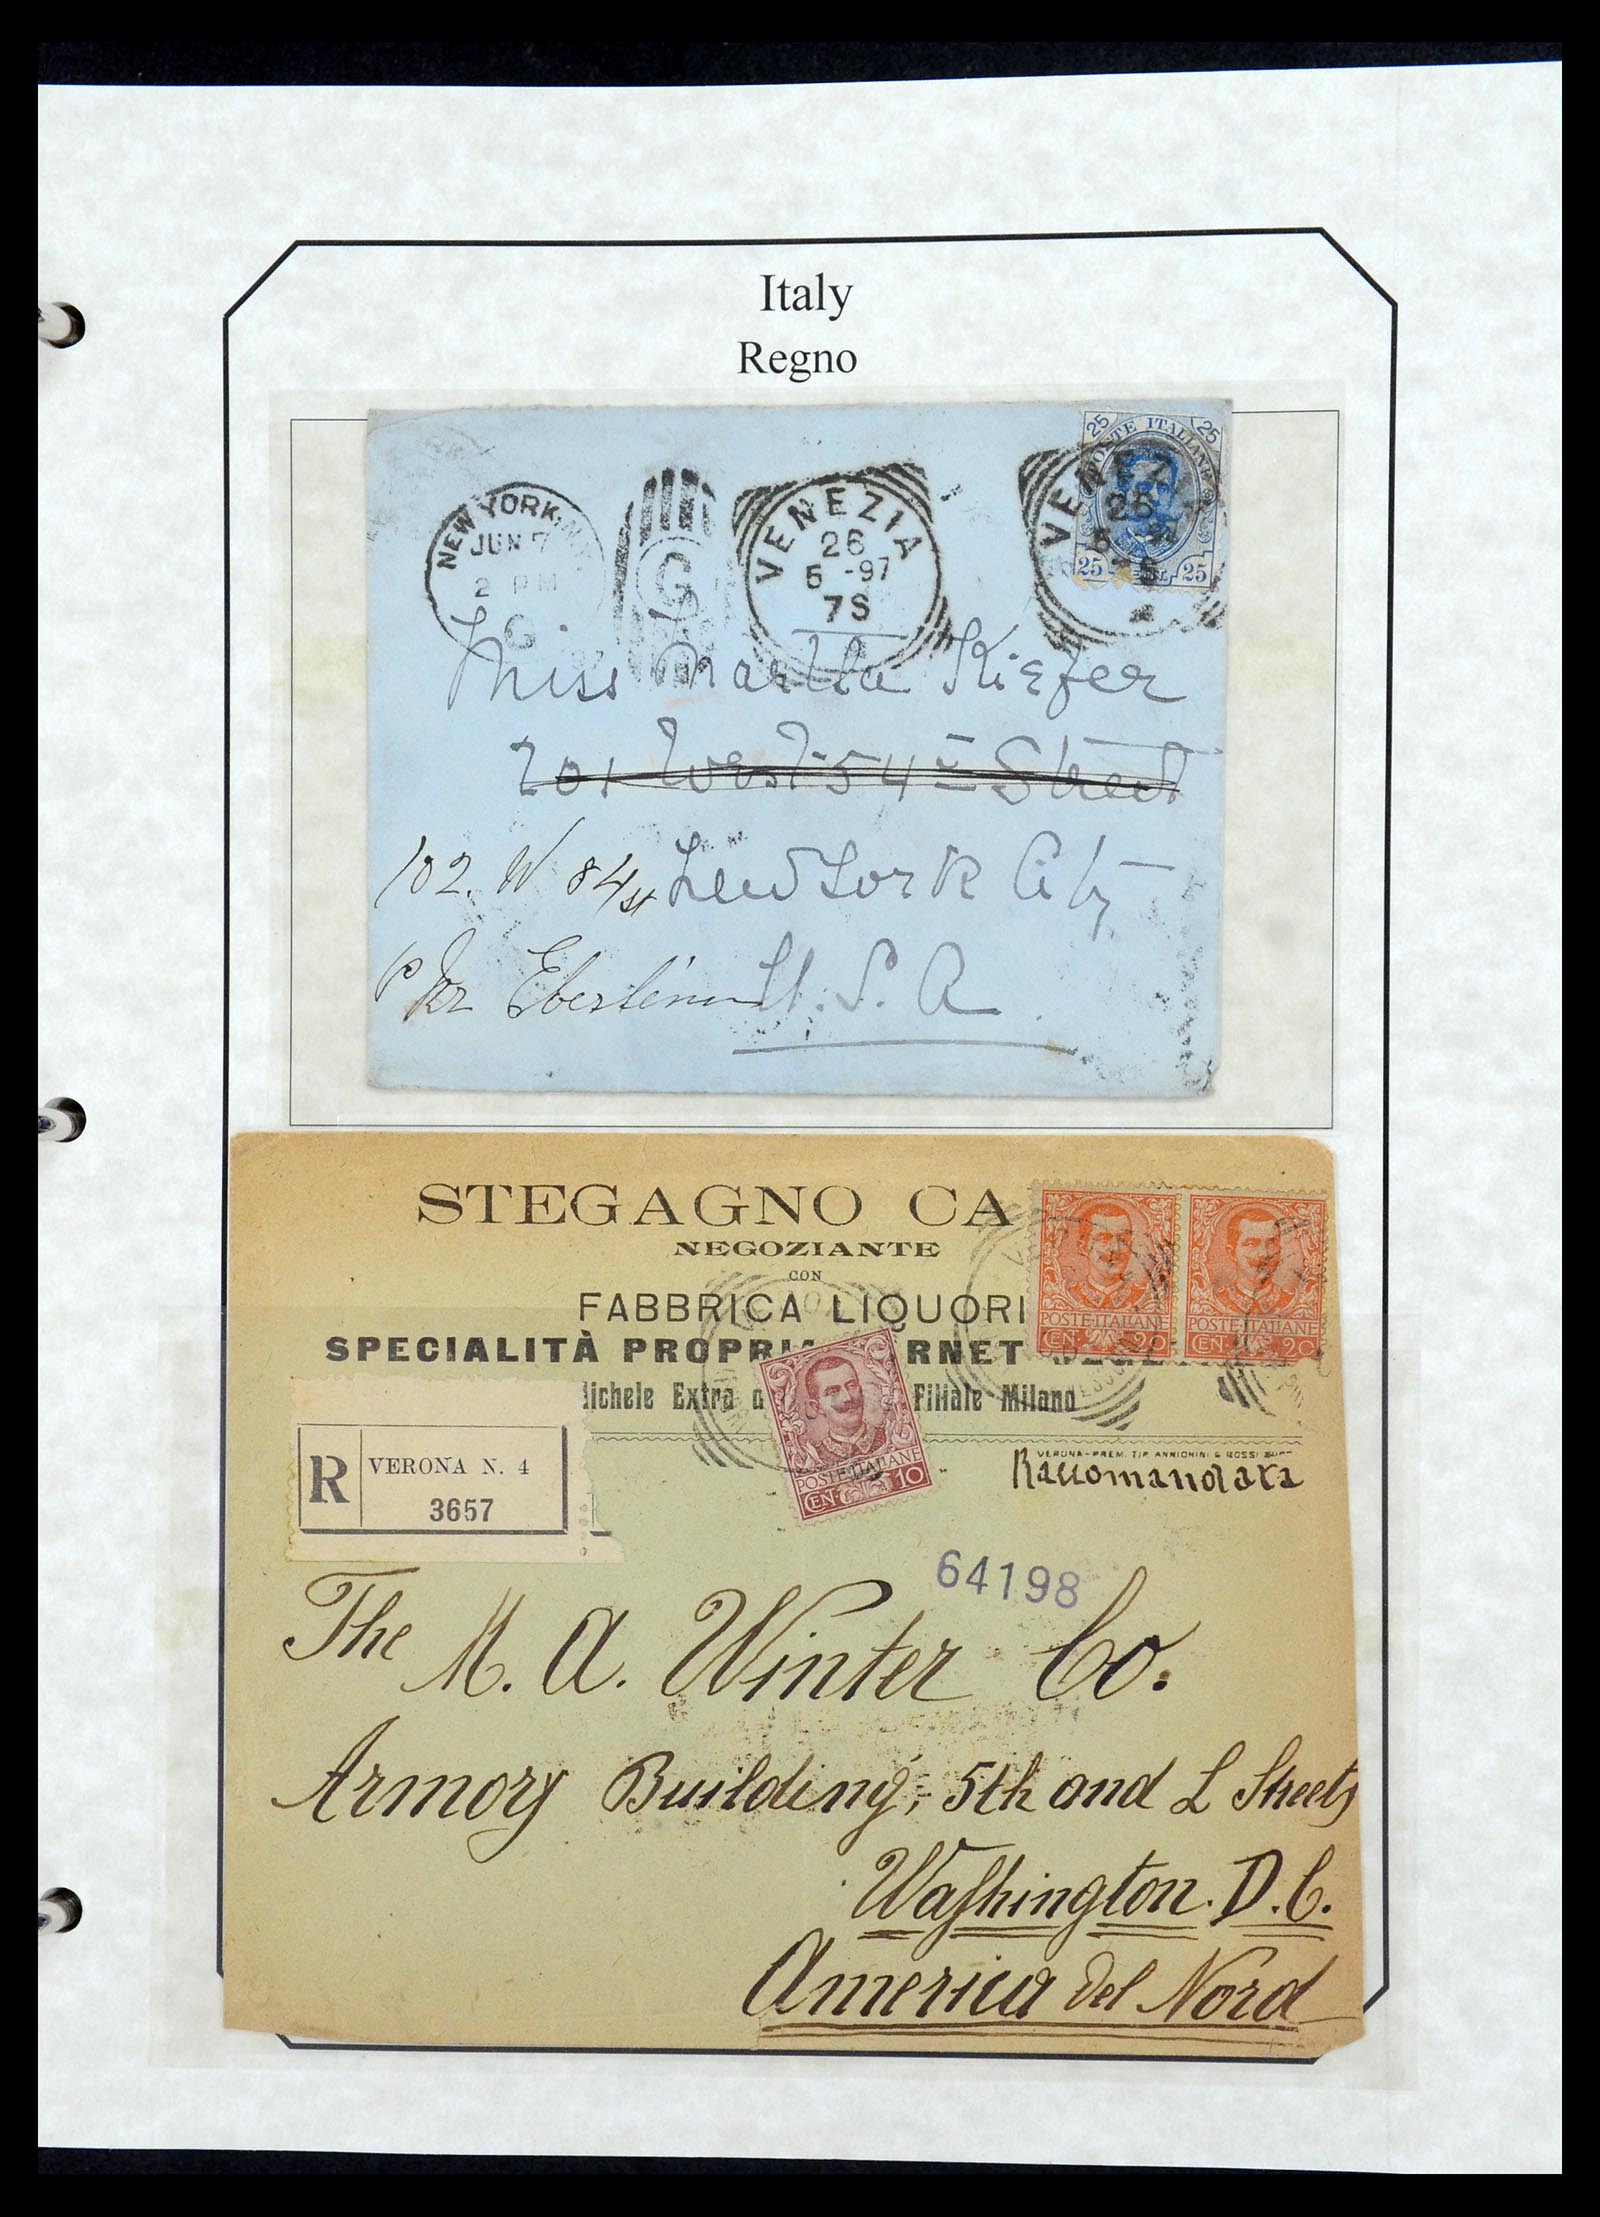 Italy
Regno
25 POSTE ITALIANE 25
25 25
NEW YORK, N.Y.
JUN 7
2 PM
G
G
VENEZIA
26
5 -97
7S
VENEZIA
26
5 -97
7S
Miss Martha Kiefer
201 West 54th Street
102. W 84 st New York City
U. S. A.
STEGAGNO CA
NEGOZIANTE
CON
FABBRICA LIQUORI
SPECIALITÀ PROPRI RNET
Michele Extra Filiale Milano
POSTE·ITALIANE POSTE·ITALIANE
CEN. 20 CEN. 20
POSTE·ITALIANE
CEN. 10
VERONA-PREM. TIP. ANNICHINI & ROSSI
Raccomandata
R VERONA N. 4
3657
64198
The M. A. Winter Co.
Armory Building, 5th and L Streets
Washington. D. C.
America del Nord